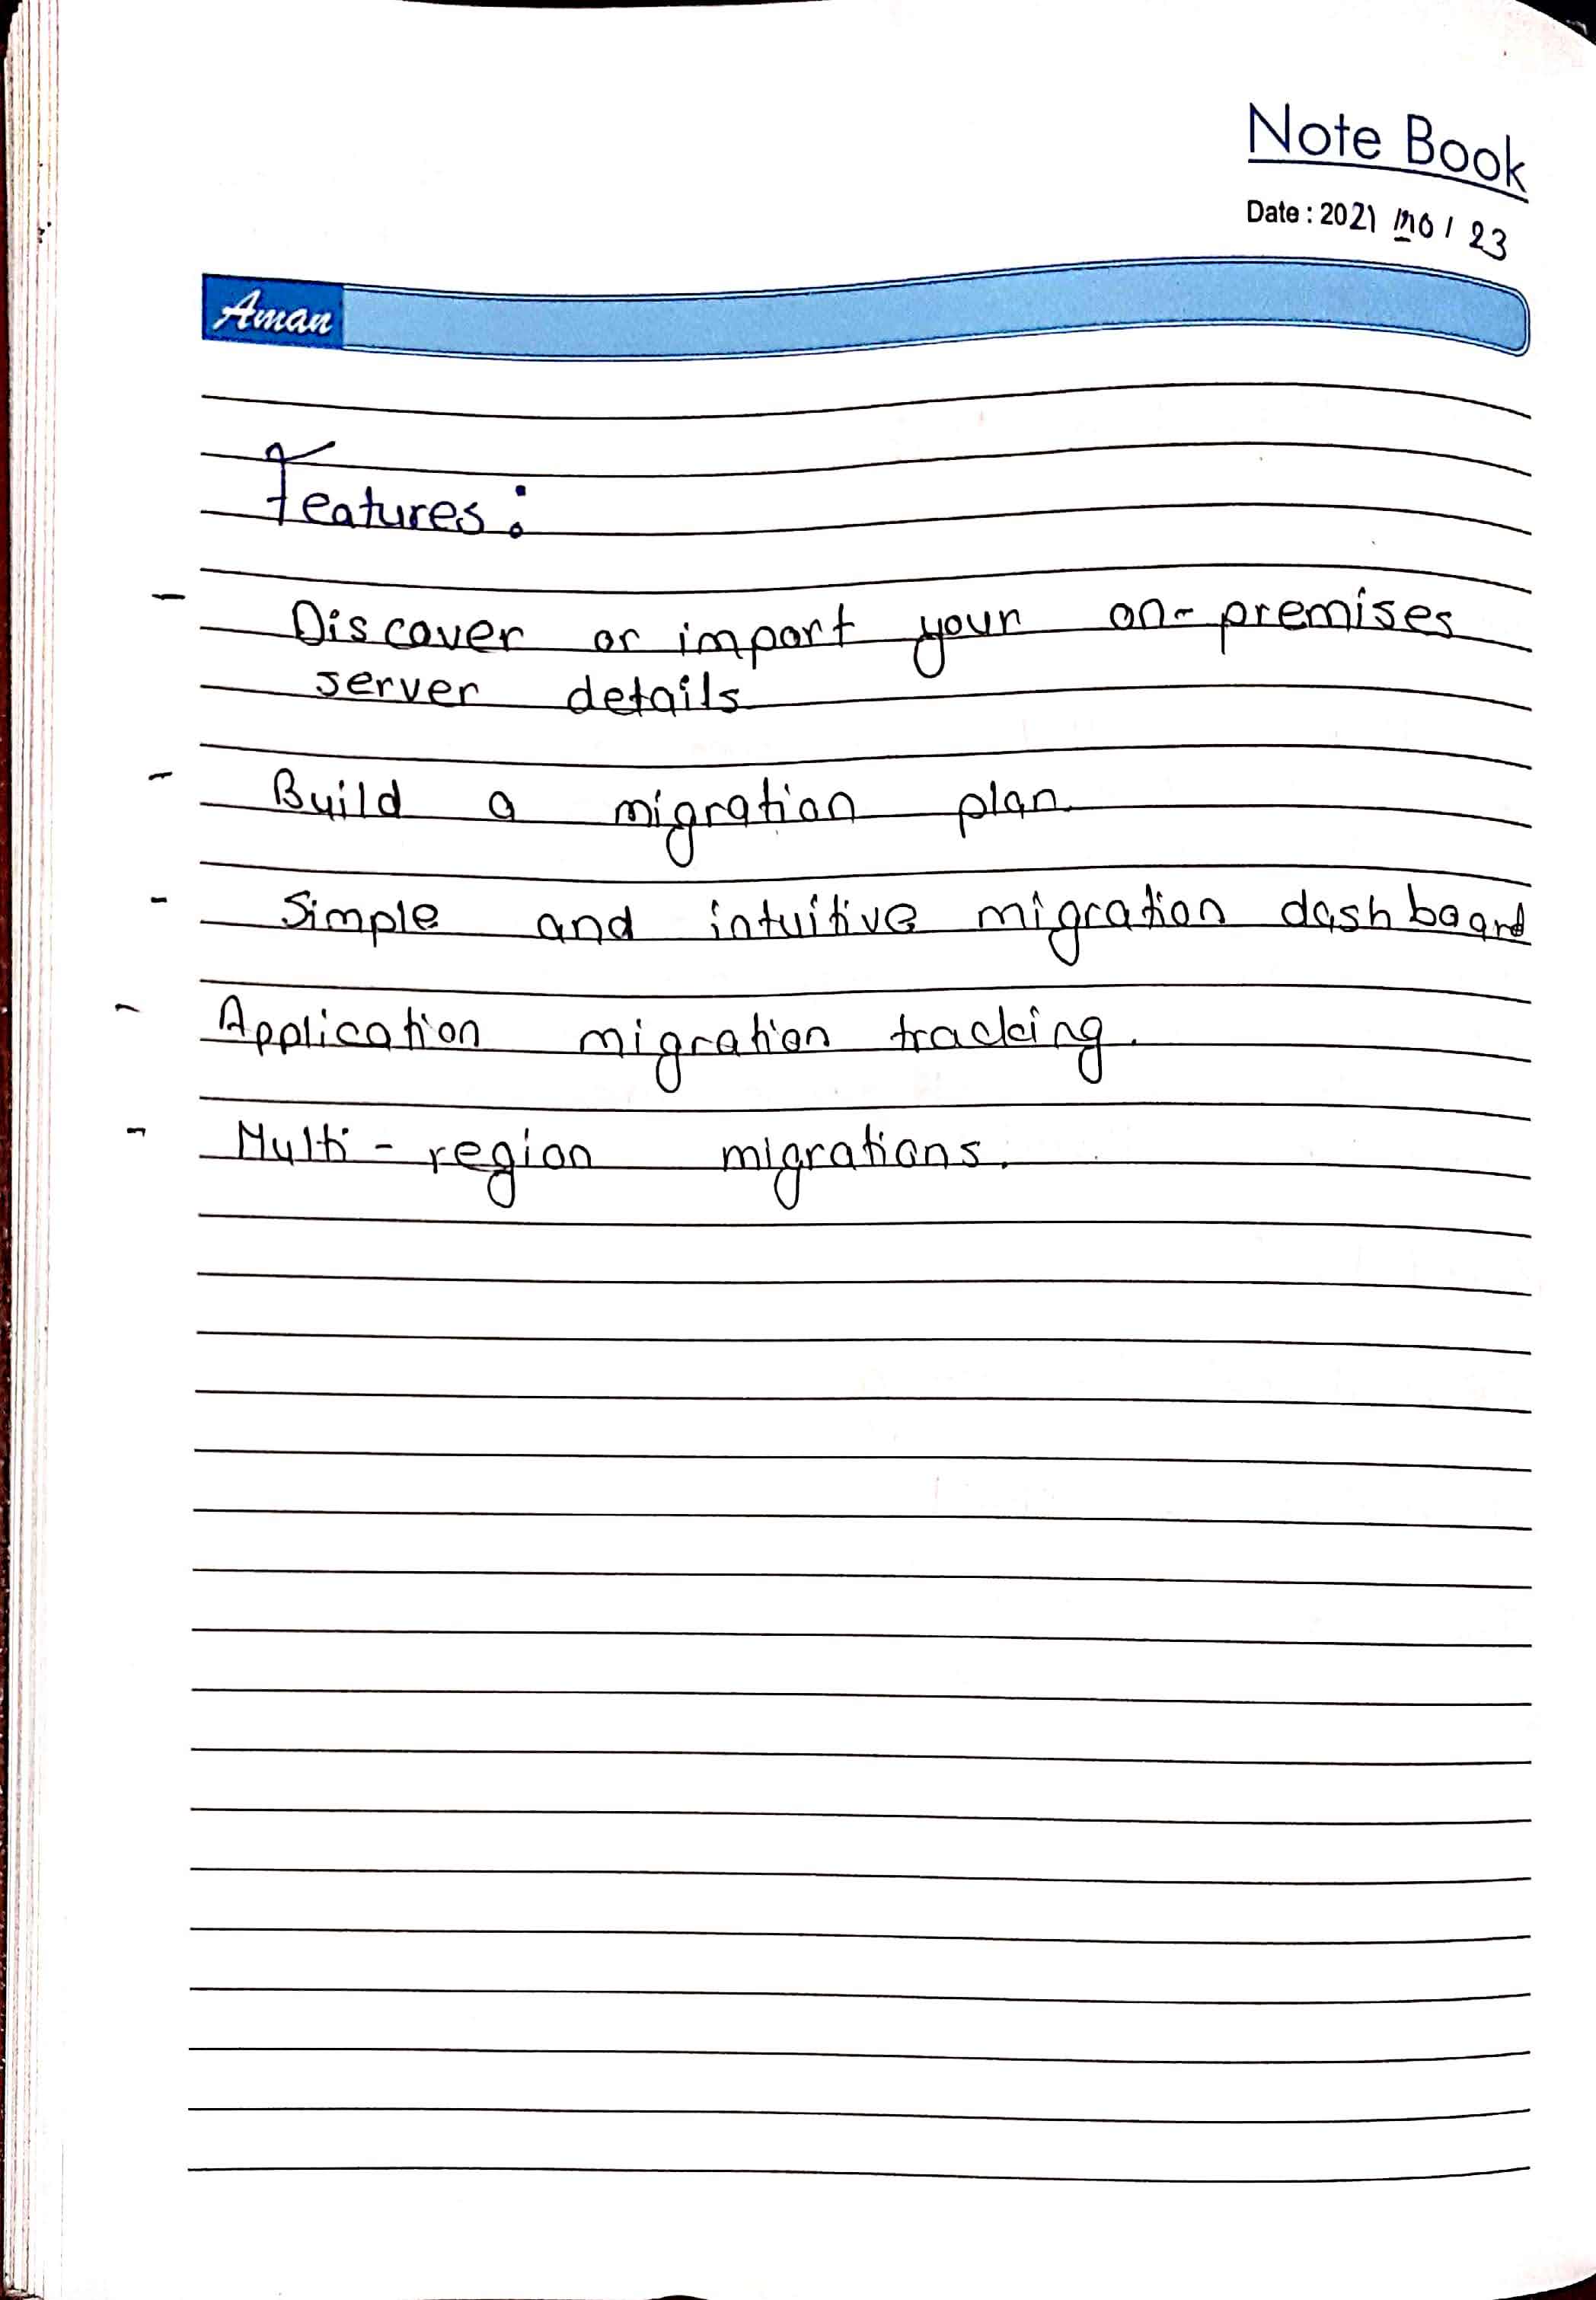 Note Book
Date : 2021 / 10 / 23
Aman
Features :
- Discover or import your on-premises
server details
- Build a migration plan
- Simple and intuitive migration dashboard
- Application migration tracking.
- Multi-region migrations.